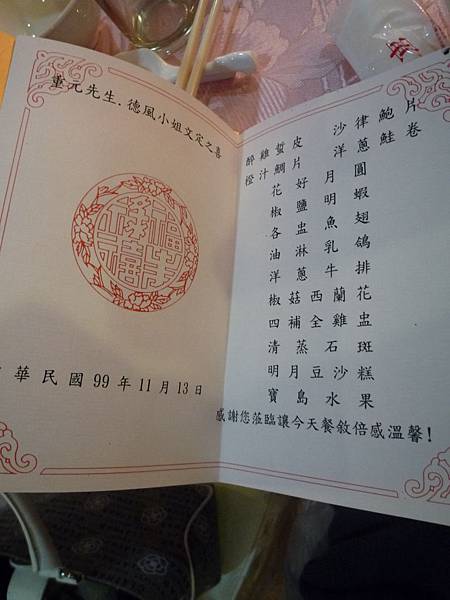 元先生.德風小姐文定之喜
華民國99年11月13日
醉雞蜇皮 沙律鮑片
橙汁鯛片 洋蔥鮭卷
花好月圓
椒鹽明蝦
各盅魚翅
油淋乳鴿
洋蔥牛排
椒菇西蘭花
四補全雞盅
清蒸石斑
明月豆沙糕
寶島水果
感謝您蒞臨讓今天餐敘倍感溫馨!